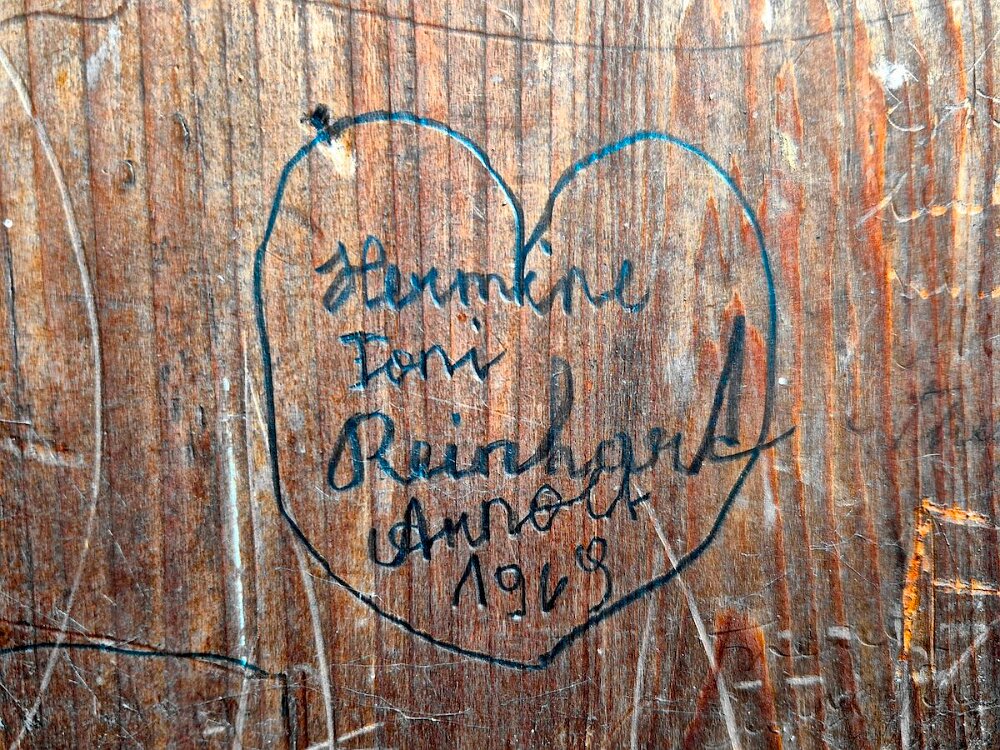 Hermine
Toni
Reinhard
Arnold
1969